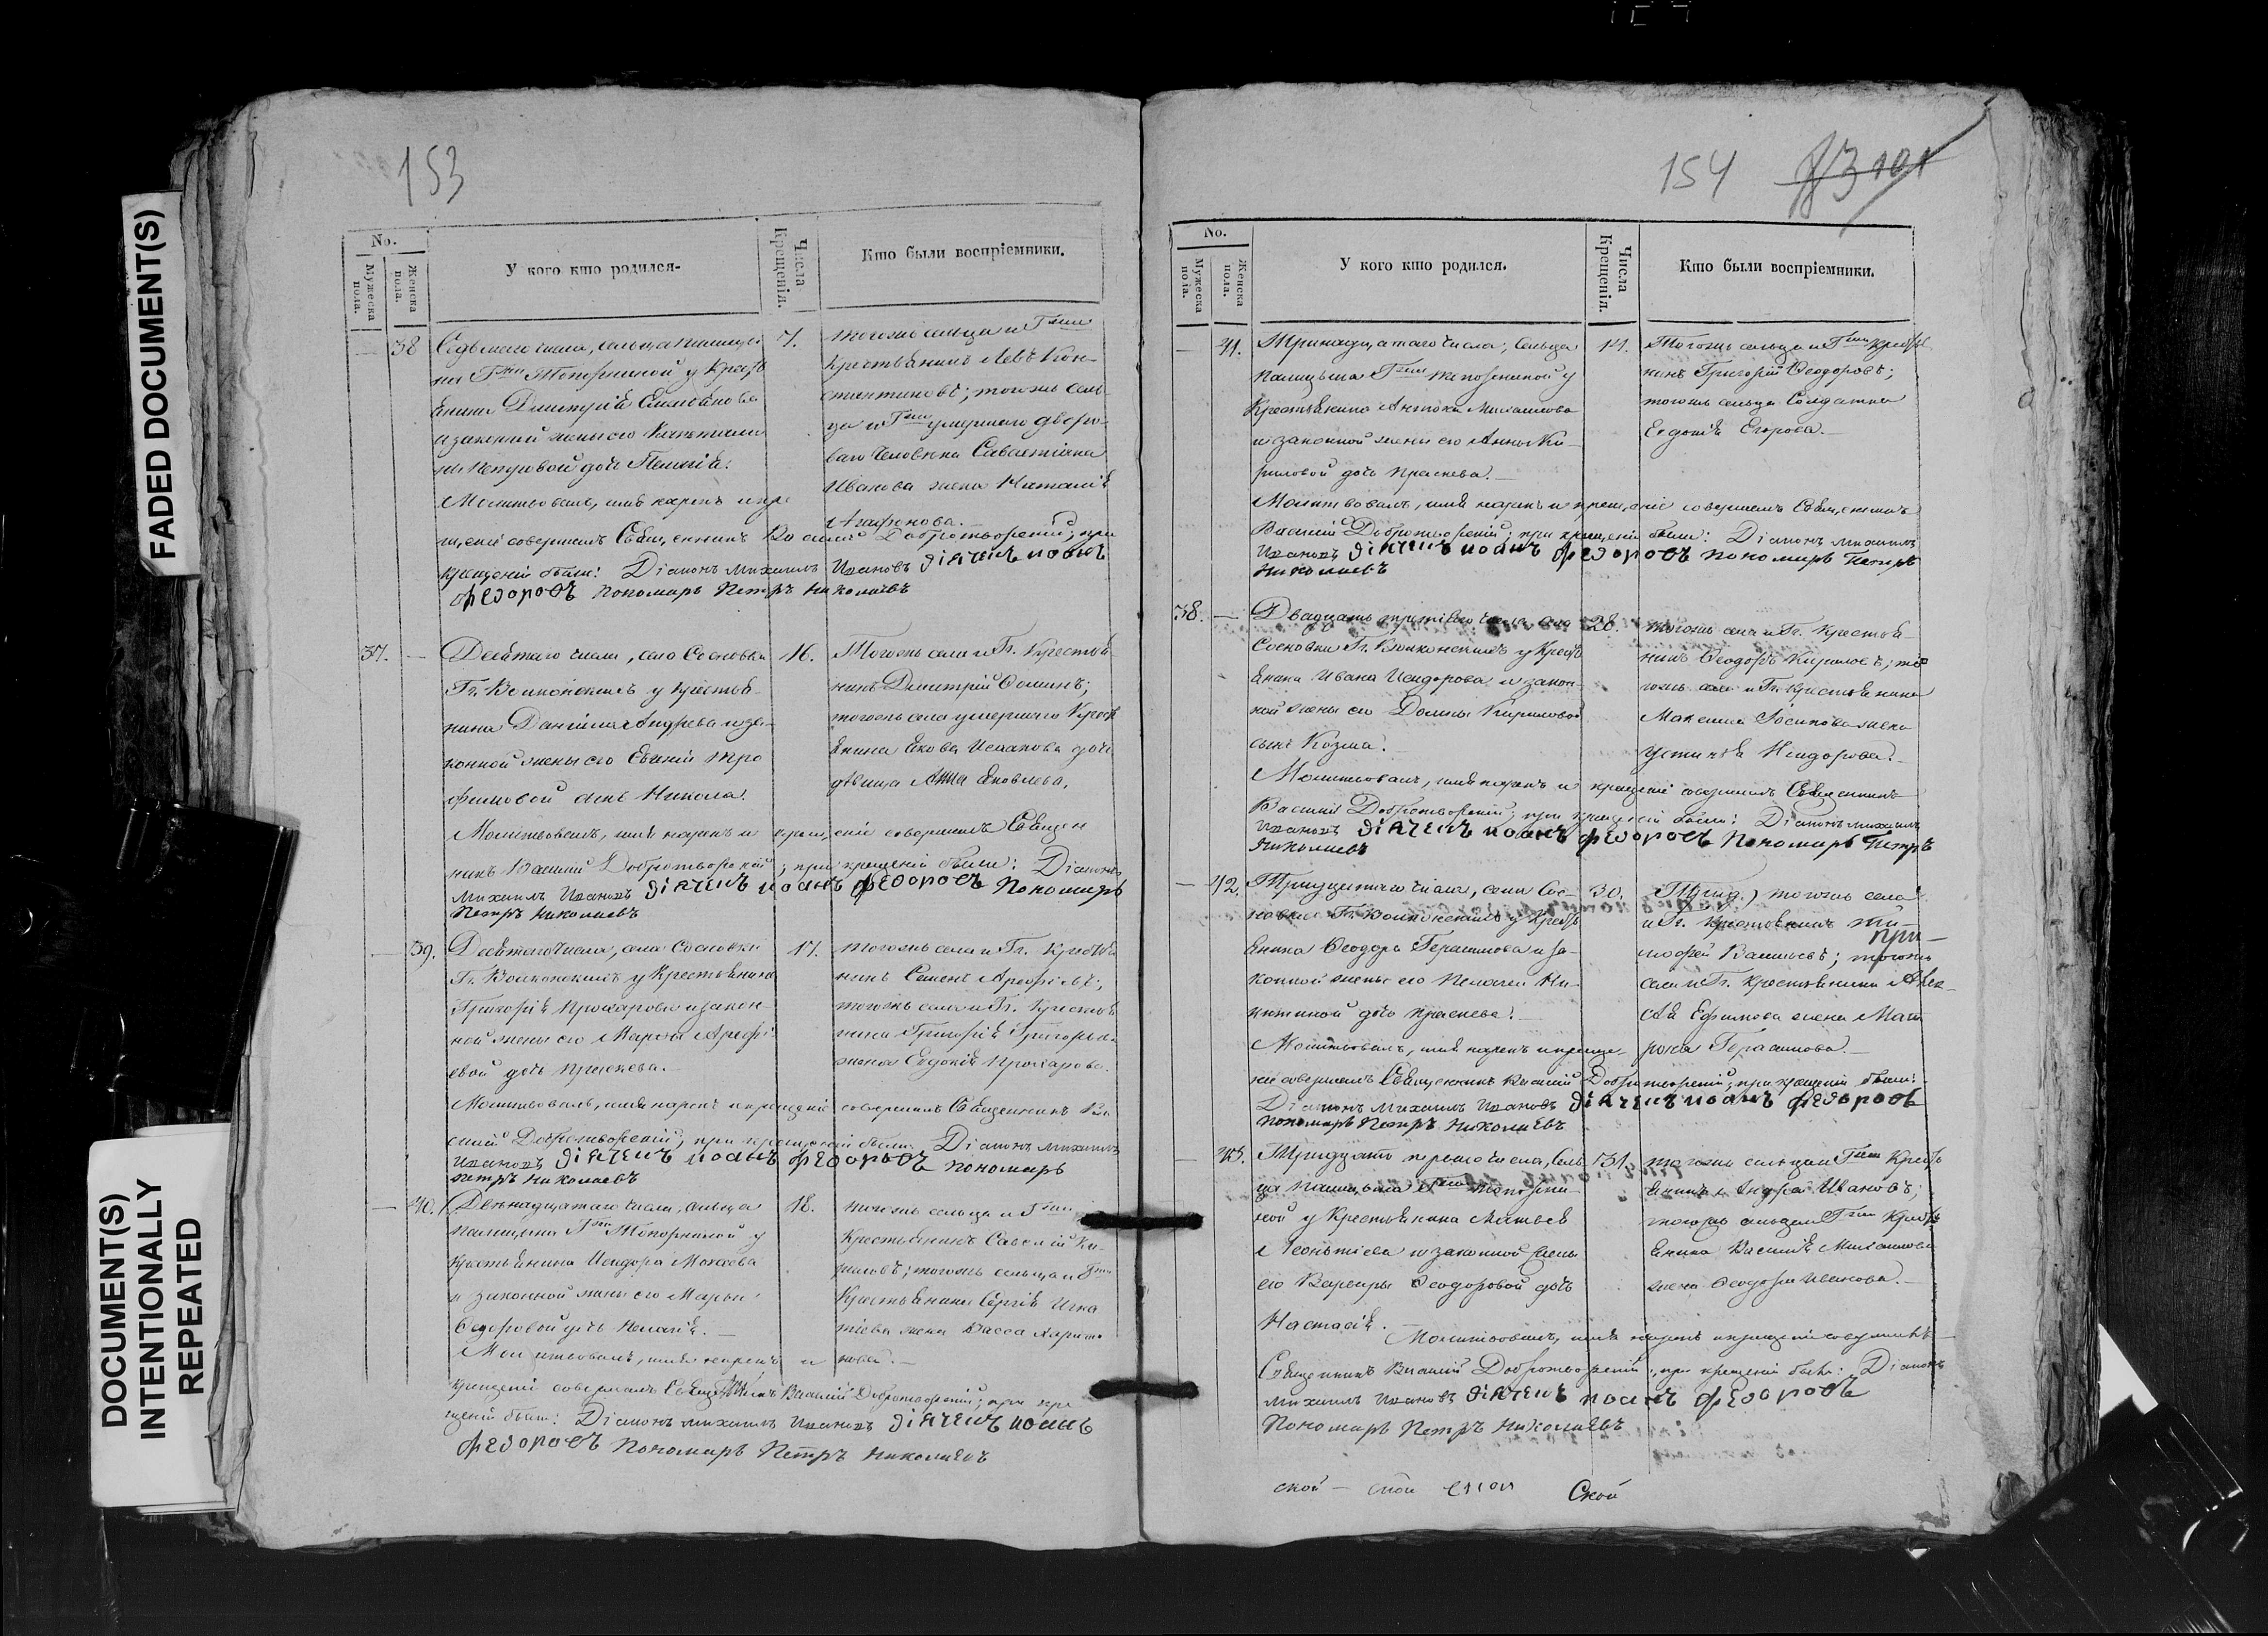 FADED DOCUMENT(S)
DOCUMENT(S)
INTENTIONALLY
REPEATED
153
No.
Мужеска пола.
Женска пола.
У кого кто родился-
Числа Крещенія.
Кто были воспріемники.
38
Седьмаго числа, сельца
Гжи Топорниной у Крестъ
янина Димитрія
и законной жены его
Петровой дочь
Молитвовалъ, имя нарекъ и кре
щеніе совершалъ Священникъ Василій Добротворскій; при
крещеніи были: Діаконъ Михаилъ Ивановъ дьячекъ иоанъ
федоровъ Пономарь Петръ Николаевъ
7.
тогожъ сельца и Гжи
Крестьянинъ Левъ Кон-
стантиновъ; тогожъ сель
ца и Гжи умершаго дворо-
ваго человека Савастіяна
Иванова жена Наталія
Агафонова.
37.
Десятаго числа, села Сосновки
Гг. Волконскихъ у крестья-
нина Даніила Андреева и за-
конной жены его Евгеніи Тро
фимовой сынъ Никола.
Молитвовалъ, имя нарекъ и крещеніе совершалъ Священ
никъ Василій Добротворскій; при крещеніи были: Діаконъ
Михаилъ Ивановъ дьячекъ иоанъ федоровъ Пономарь
Петръ Николаевъ
16.
Тогожъ села и Гг. Крестья
нинъ Димитрій Фоминъ;
тогожъ села умершаго Крест
янина Якова Исакова дочь
девица Анна Яковлева.
39.
Десятаго числа, села Сосновки
Гг. Волконскихъ у Крестьянина
Григорія Прохорова и закон-
ной жены его Марфы Арефи-
евой дочь Праскева.
Молитвовалъ, имя нарекъ и крещеніе совершалъ Священникъ Ва
силій Добротворскій; при крещеніи были Діаконъ Михаилъ
Ивановъ дьячекъ иоанъ федоровъ пономарь
Петръ Николаевъ
17.
тогожъ села и Гг. Крестья
нинъ Семенъ Арефіевъ;
тогожъ села и Гг. Крестья
нина Григорія Григорьева
жена Евдокія Прохорова.
40.
Двенадцатаго числа, сельца
Гжи Топорниной у
крестьянина Исидора Мокеева
и законной жены его Марьи
Федоровой дочь Пелагія.
Молитвовалъ, имя нарекъ и
крещеніе совершалъ Священникъ Василій Добротворскій; при кре
щеніи были: Діаконъ Михаилъ Ивановъ дьячекъ иоанъ
федоровъ Пономарь Петръ Николаевъ
18.
тогожъ сельца и Гжи
Крестьянинъ Савелій Ки-
риловъ; тогожъ сельца и Гжи
Крестьянина Сергія Игна
тіева жена Васса Харито
нова.
154
101
No.
Мужеска пола.
Женска пола.
У кого кто родился.
Числа Крещенія.
Кто были воспріемники.
41.
Тринадцатаго числа, Сельца
Гжи Топорниной у
Крестьянина Антона Михаилова
и законной жены его Анны Ки-
риловой дочь Праскева.
Молитвовалъ, имя нарекъ и крещеніе совершалъ Священникъ
Василій Добротворскій; при крещеніи были: Діаконъ Михаилъ
Ивановъ дьячекъ иоанъ федоровъ пономарь Петръ
Николаевъ
14.
Тогожъ сельца и Гжи Крестья
нинъ Григорій Ѳеодоровъ;
тогожъ сельца Солдатка
Евдокія Егорова.
38.
Двадцать третьяго числа села
Сосновки Гг. Волконскихъ у Кресть
янина Ивана Исидорова и закон-
ной жены его Домны Кириловой
сынъ Козма.
Молитвовалъ, имя нарекъ и крещеніе совершалъ Священникъ
Василій Добротворскій; при крещеніи были: Діаконъ Михаилъ
Ивановъ дьячекъ иоанъ федоровъ Пономарь Петръ
Николаевъ
26.
тогожъ села и Гг. Крестья
нинъ Ѳеодоръ Кириловъ; то
гожъ села и Гг. Крестьянина
Максима Іосифова жена
Устинья Исидорова.
42.
Тридцатаго числа, села Сос-
новки Гг. Волконскихъ у Кресть
янина Ѳеодора Герасимова и за-
конной жены его Пелагеи Ни-
китиной дочь Праскева.
Молитвовалъ, имя нарекъ и креще-
ніе совершалъ Священникъ Василій Добротворскій; при крещеніи были:
Діаконъ Михаилъ Ивановъ дьячекъ иоанъ федоровъ
пономарь Петръ Николаевъ
30.
тогожъ села
и Гг. Крестьянинъ Ти-
при-
мофей Васильевъ; тогожъ
села и Гг. Крестьянина Алек-
сѣя Ефимова жена Мат
рона Герасимова.
43.
Тридцать перваго числа, Сель
ца Гжи Топорни-
ной у Крестьянина Матвея
Леонтіева и законной жены
его Варвары Ѳеодоровой дочь
Настасія.
Молитвовалъ, имя нарекъ и крещеніе совершалъ
Священникъ Василій Добротворскій, при крещеніи были: Діаконъ
Михаилъ Ивановъ дьячекъ иоанъ федоровъ
Пономарь Петръ Николаевъ
31.
тогожъ сельца и Гжи Кресть
янинъ Андрей Ивановъ;
тогожъ сельца и Гжи Кресть
янина Василія Михаилова
жена Ѳеодора Иванова.
ской - ской Ской